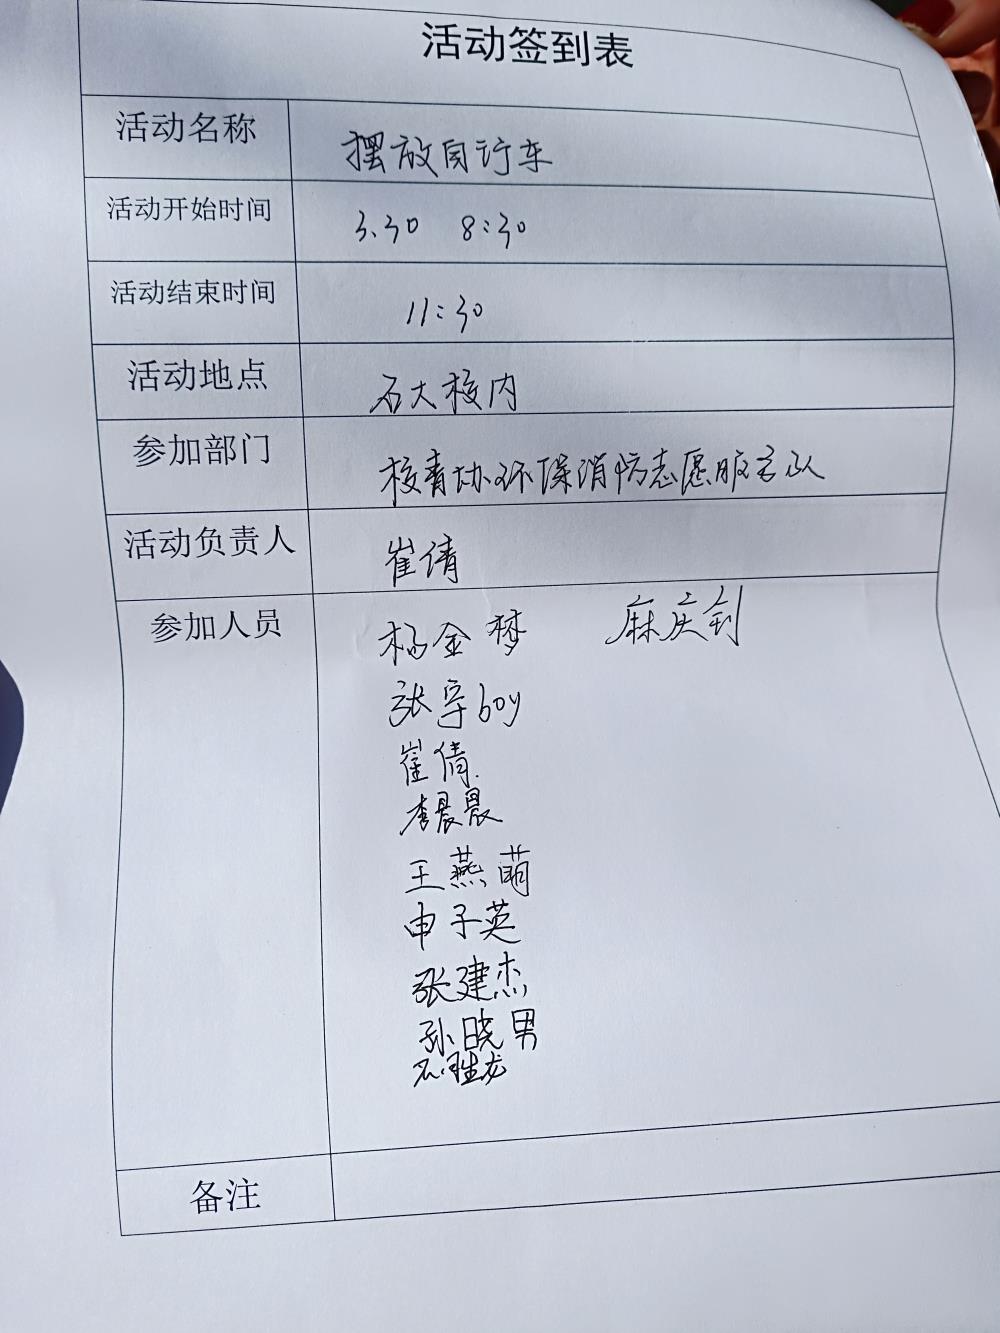 活动签到表
活动名称 摆放自行车
活动开始时间 3.30 8:30
活动结束时间 11:30
活动地点 石大校内
参加部门 校青协环保消防志愿服务队
活动负责人 崔倩
参加人员 杨金梦 麻庆钊
张宇boy
崔倩
李晨晨
王燕萌
申子英
张建杰
孙晓男
石胜龙
备注